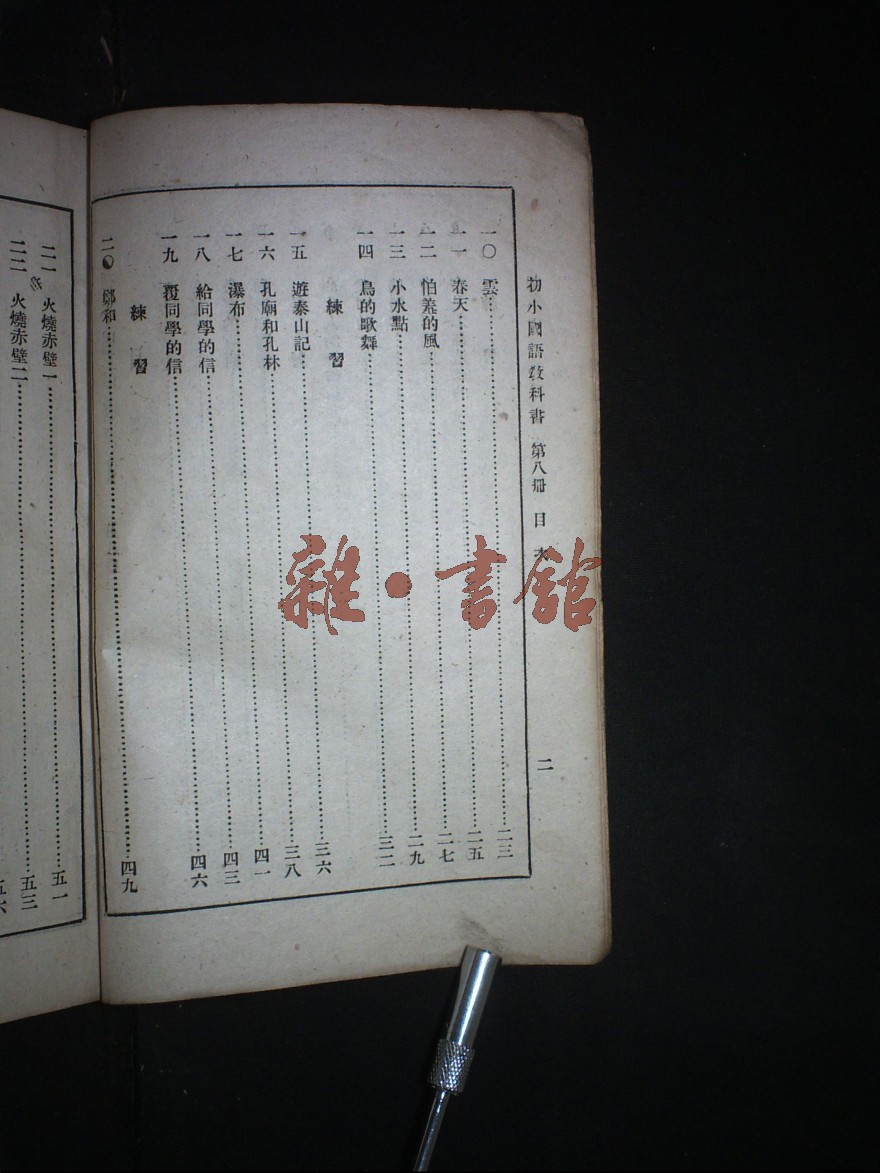 初小國語教科書 第八冊 目次 二
一〇 雲……二三
一一 春天……二五
一二 怕羞的風……二七
一三 小水點……二九
一四 鳥的歌舞……三二
練習
一五 遊泰山記……三六
一六 孔廟和孔林……三八
一七 瀑布……四一
一八 給同學的信……四三
一九 覆同學的信……四六
練習
二〇 鄭和……四九
二一 火燒赤壁一……五一
二二 火燒赤壁二……五三
五六
雜·書館